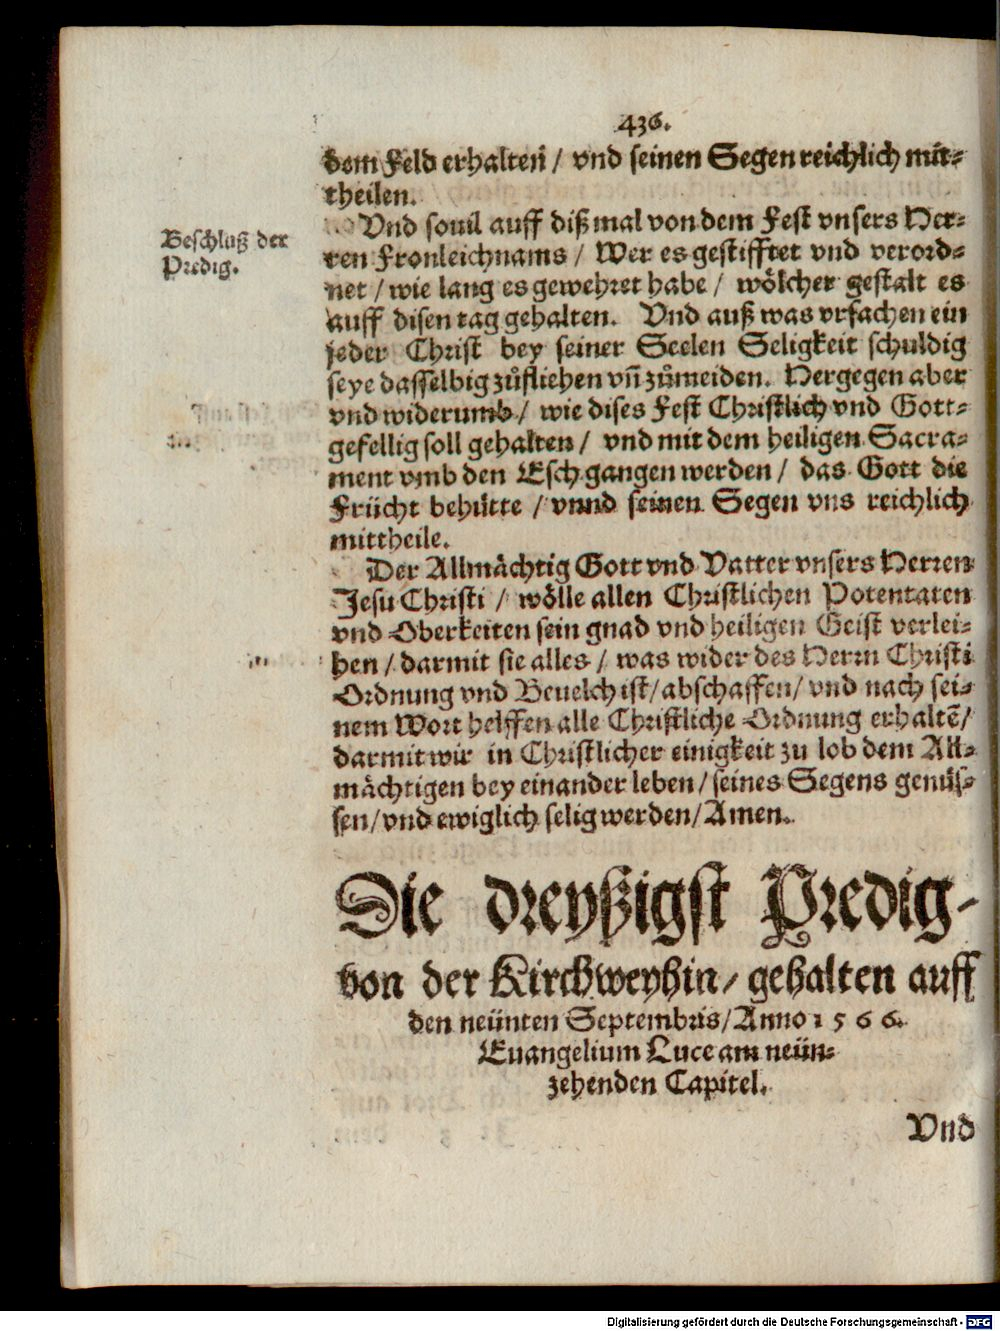 436.
dem Feld erhalten / vnd seinen Segen reichlich mit-
theilen.
Vnd souil auff diß mal von dem Fest vnsers Her-
Beschluß der
Predig.
ren Fronleichnams / Wer es gestifftet vnd verord-
net / wie lang es gewehret habe / wölcher gestalt es
auff disen tag gehalten. Vnd auß was vrsachen ein
jeder Christ bey seiner Seelen Seligkeit schuldig
seye dasselbig zůfliehen vñ zůmeiden. Hergegen aber
vnd widerumb / wie dises Fest Christlich vnd Gott-
gefellig soll gehalten / vnd mit dem heiligen Sacra-
ment vmb den Esch gangen werden / das Gott die
Frücht behütte / vnnd seinen Segen vns reichlich
mittheile.
Der Allmächtig Gott vnd Vatter vnsers Herren
Jesu Christi / wölle allen Christlichen Potentaten
vnd Oberkeiten sein gnad vnd heiligen Geist verlei-
hen / darmit sie alles / was wider des Herrn Christi
Ordnung vnd Beuelch ist / abschaffen / vnd nach sei-
nem Wort helffen alle Christliche Ordnung erhaltē /
darmit wir in Christlicher einigkeit zu lob dem All-
mächtigen bey einander leben / seines Segens genüs-
sen / vnd ewiglich selig werden / Amen.
Die dreyßigst Predig-
von der Kirchweyhin / gehalten auff
den neünten Septembris / Anno 1566.
Euangelium Luce am neün-
zehenden Capitel.
Vnd
Digitalisierung gefördert durch die Deutsche Forschungsgemeinschaft - DFG